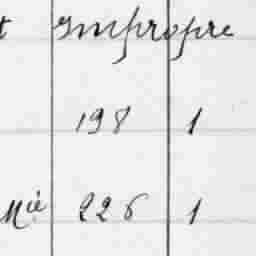 t impropre
198 1
Mie 226 1